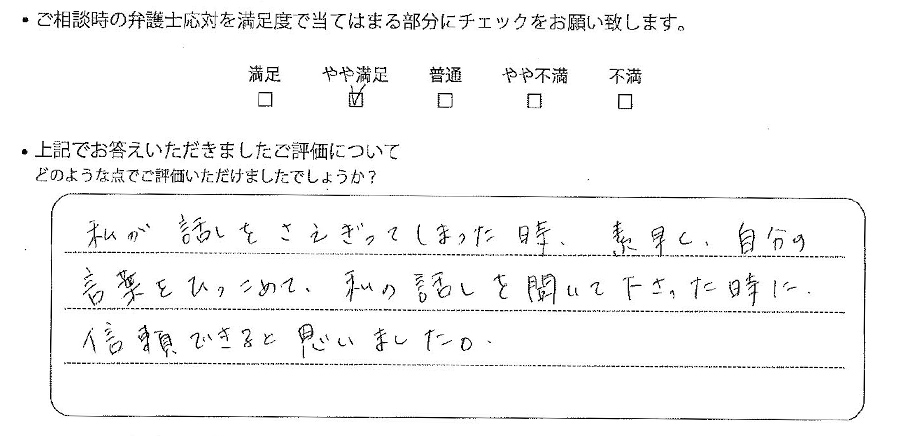 ・ご相談時の弁護士応対を満足度で当てはまる部分にチェックをお願い致します。
満足 やや満足 普通 やや不満 不満
□ ☑ □ □ □
・上記でお答えいただきましたご評価について
どのような点でご評価いただけましたでしょうか？
私が話しをさえぎってしまった時、素早く、自分の
言葉をひっこめて、私の話しを聞いて下さった時に、
信頼できると思いました。